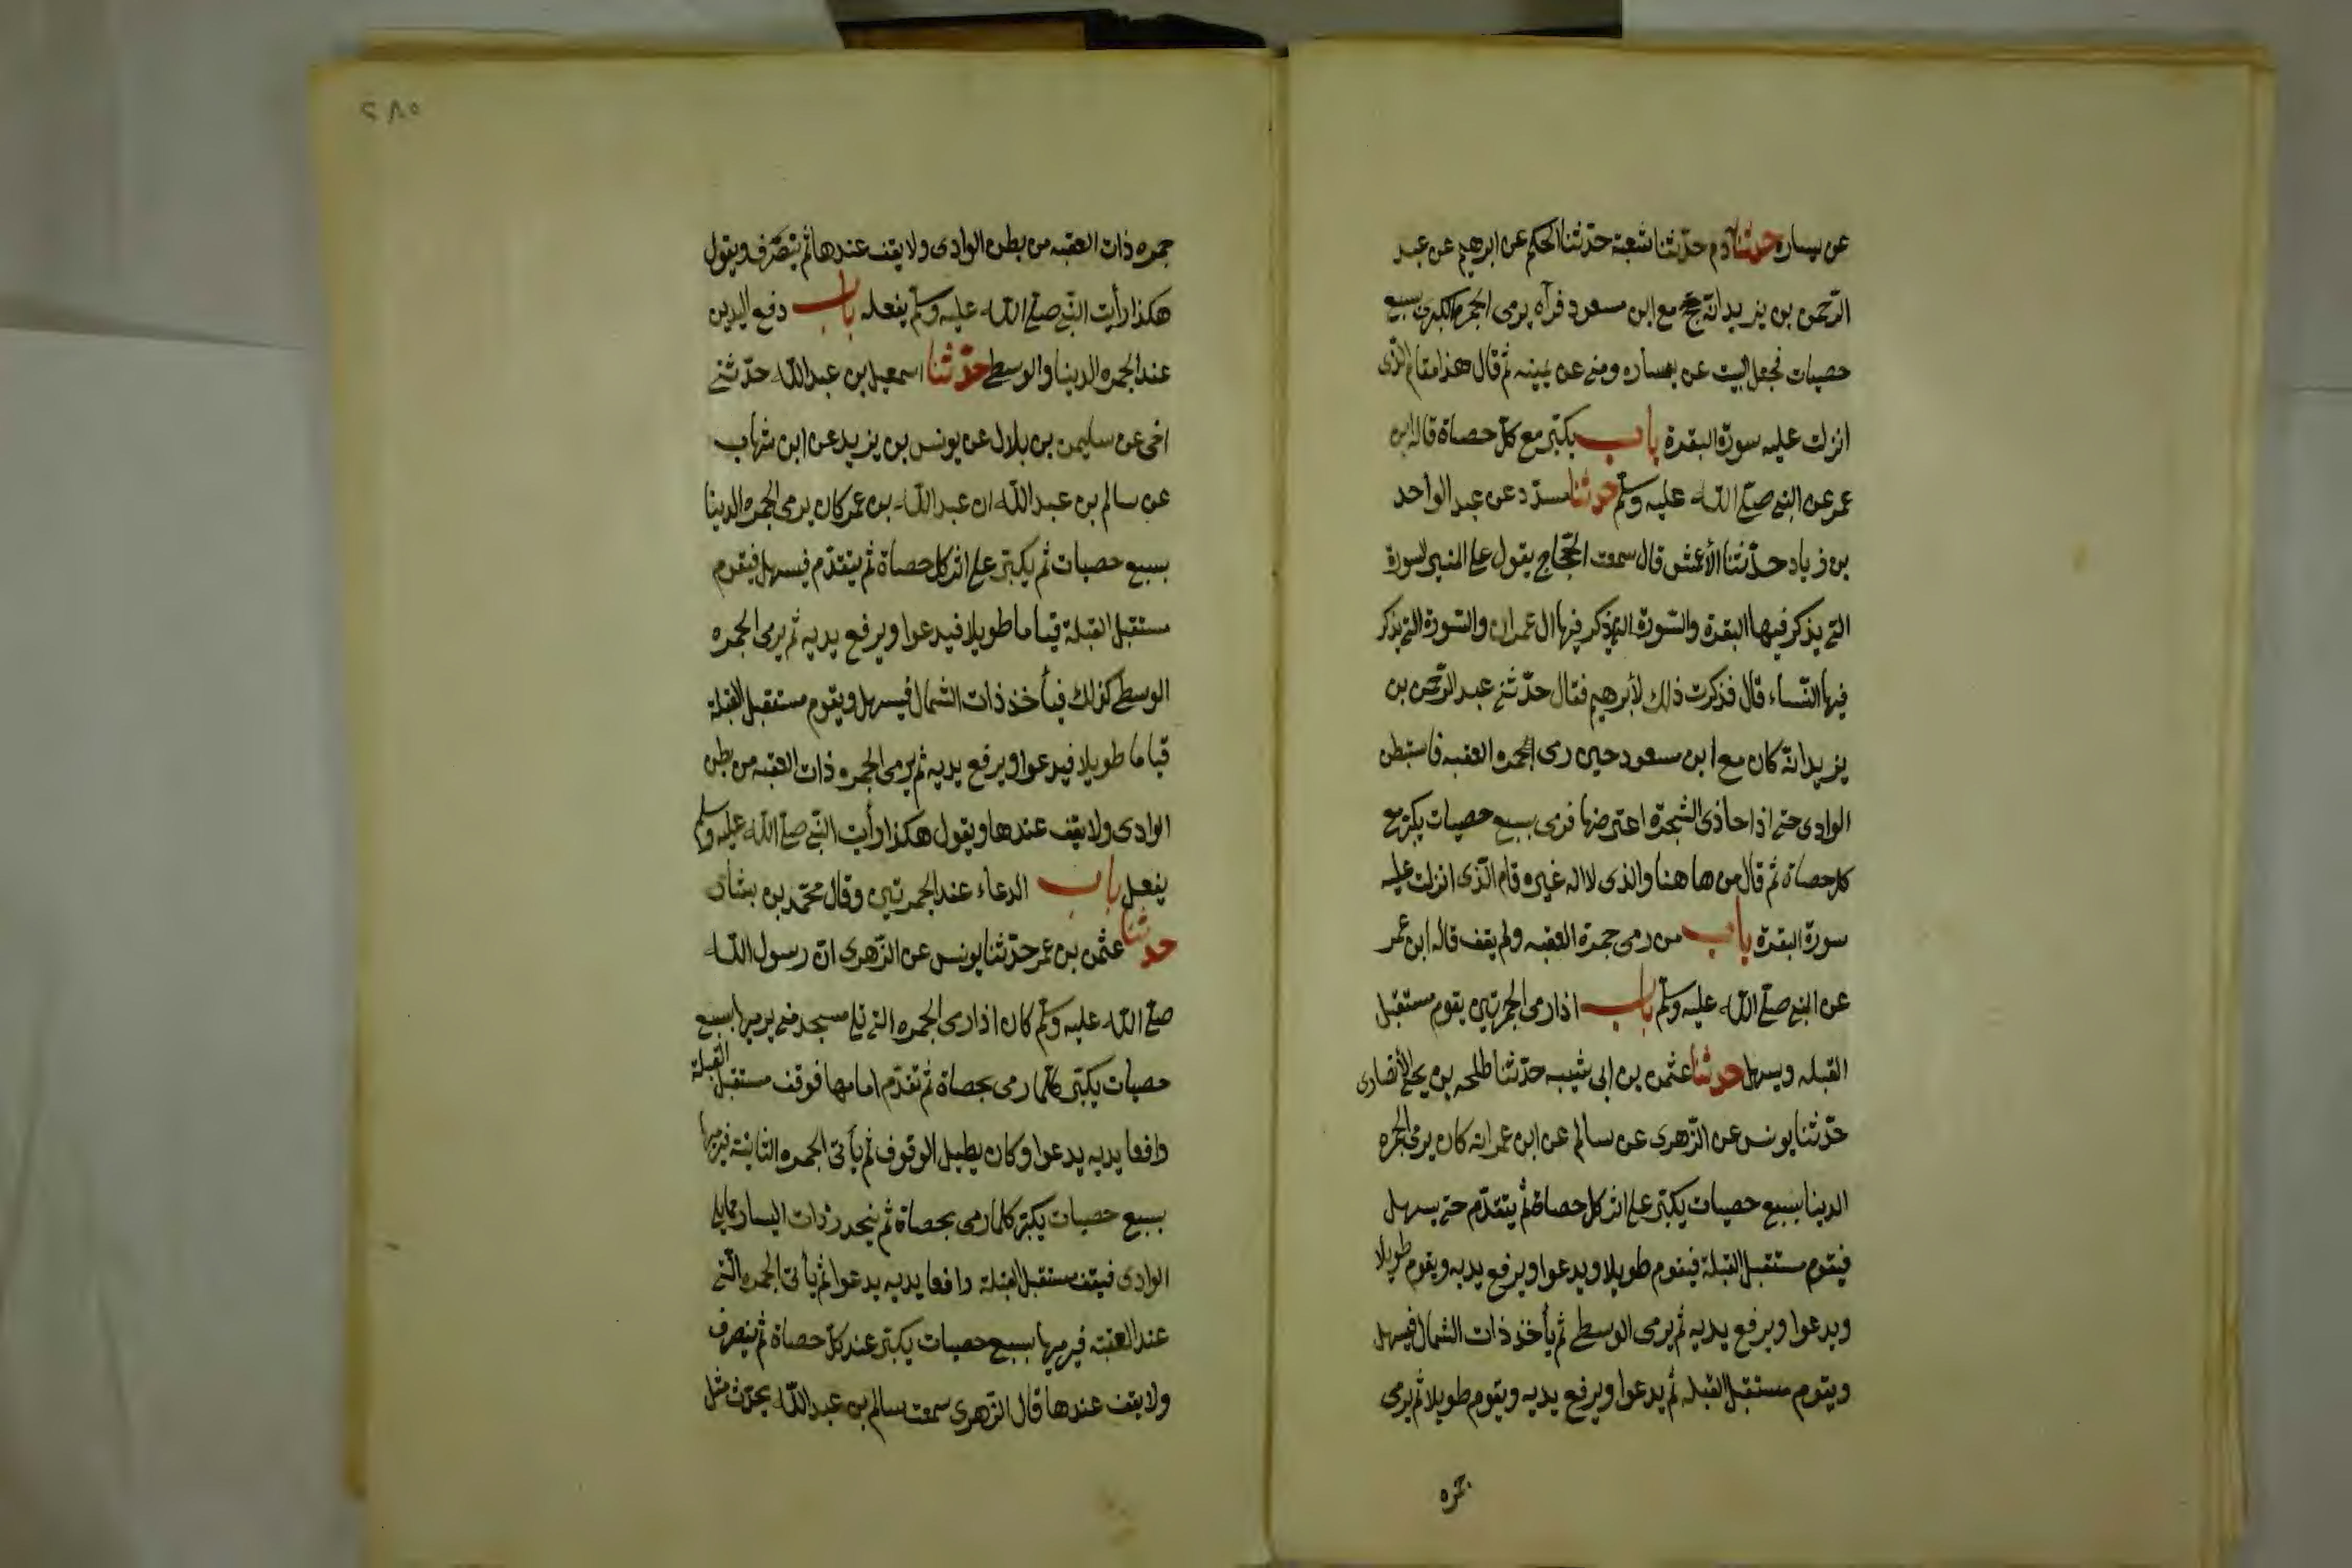 عن يساره حدثنا آدم حدثنا شعبة حدثنا الحكم عن ابرهيم عن عبد
الرحمن بن يزيد انه حج مع ابن مسعود فرآه يرمى الجمرة الكبرى بسبع
حصيات فجعل البيت عن يساره ومنى عن يمينه ثم قال هذا مقام الذى
انزلت عليه سورة البقرة باب يكبر مع كل حصاة قاله ابن
عمر عن النبى صلى الله عليه وسلم حدثنا مسدد عن عبد الواحد
بن زياد حدثنا الأعمش قال سمعت الحجاج يقول على المنبر السورة
التى يذكر فيها البقرة والسورة التى يذكر فيها ال عمران والسورة التى يذكر
فيها النساء قال فذكرت ذلك لأبرهيم فقال حدثنى عبد الرحمن بن
يزيد انه كان مع ابن مسعود حين رمى الجمره العقبه فاستبطن
الوادى حتى اذا حاذى الشجرة اعترضها فرمى بسبع حصيات يكبر مع
كل حصاة ثم قال من هاهنا والذى لا اله غيره قام الذى انزلت عليه
سورة البقرة باب من رمى جمرة العقبه ولم يقف قاله ابن عمر
عن النبى صلى الله عليه وسلم باب اذا رمى الجمرتين يقوم مستقبل
القبله ويسهل حدثنا عثمن بن ابى شيبه حدثنا طلحه بن يحيى الأنصارى
حدثنا يونس عن الزهرى عن سالم عن ابن عمر انه كان يرمى الجمره
الدينا بسبع حصيات يكبر على اثر كل حصاة ثم يتقدم حتى يسهل
فيقوم مستقبل القبلة فيقوم طويلا ويدعوا ويرفع يديه ويقوم طويلا
ويدعوا ويرفع يديه ثم يرمى الوسطى ثم يأخذ ذات الشمال فيسهل
ويقوم مستقبل القبله ثم يدعوا ويرفع يديه ويقوم طويلا ثم يرمى
جمره
٢٨٥
جمره ذات العقبه من بطن الوادى ولا يقف عندها ثم ينصرف ويقول
هكذا رأيت النبى صلى الله عليه وسلم يفعله باب رفع اليدين
عند الجمره الدينا والوسطى حدثنا اسمعيل بن عبد الله حدثنى
اخى عن سليمن بن بلال عن يونس بن يزيد عن ابن شهاب
عن سالم بن عبد الله ان عبد الله بن عمر كان يرمى الجمره الدينا
بسبع حصيات ثم يكبر على اثر كل حصاة ثم يتقدم فيسهل فيقوم
مستقبل القبلة قياما طويلا فيدعوا ويرفع يديه ثم يرمى الجمره
الوسطى كذلك فيأخذ ذات الشمال فيسهل ويقوم مستقبل القبلة
قياما طويلا فيدعوا ويرفع يديه ثم يرمى الجمره ذات العقبه من بطن
الوادى ولا يقف عندها ويقول هكذا رأيت النبى صلى الله عليه وسلم
يفعل باب الدعاء عند الجمرتين وقال محمد بن بشار
حدثنا عثمن بن عمر حدثنا يونس عن الزهرى ان رسول الله
صلى الله عليه وسلم كان اذا رمى الجمره التى تلى مسجد منى يرميها بسبع
حصيات يكبر كلما رمى بحصاة ثم تقدم امامها فوقف مستقبل القبلة
رافعا يديه يدعوا وكان يطيل الوقوف ثم يأتى الجمره الثانية فيرميها
بسبع حصيات يكبر كلما رمى بحصاة ثم ينحدر ذات اليسار مما يلى
الوادى فيقف مستقبل القبلة رافعا يديه يدعوا ثم يأتى الجمره التى
عند العقبه فيرميها بسبع حصيات يكبر عند كل حصاة ثم ينصرف
ولا يقف عندها قال الزهرى سمعت سالم بن عبد الله يحدث مثل